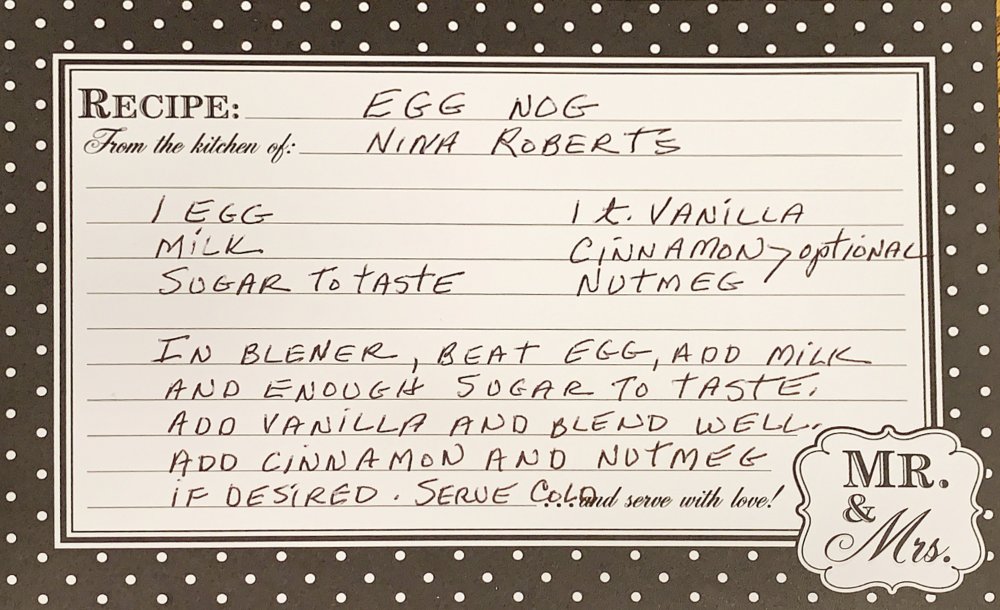 RECIPE: EGG NOG
From the kitchen of: NINA ROBERTS
1 EGG 1 t. VANILLA
MILK CINNAMON > optional
SUGAR TO TASTE NUTMEG
IN BLENER, BEAT EGG, ADD MILK
AND ENOUGH SUGAR TO TASTE.
ADD VANILLA AND BLEND WELL.
ADD CINNAMON AND NUTMEG
IF DESIRED. SERVE COLD ...and serve with love!
MR.
&
Mrs.